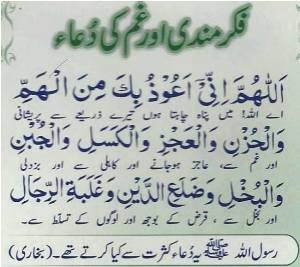 فکر مندی اور غم کی دُعاء
اَللّٰهُمَّ اِنِّیْ اَعُوْذُ بِكَ مِنَ الْهَمِّ
اے اللہ! میں پناہ چاہتا ہوں تیرے ذریعے سے پریشانی
وَالْحُزْنِ وَالْعَجْزِ وَالْكَسَلِ وَالْجُبْنِ
اور غم سے، عاجز ہوجانے اور کاہلی سے اور بزدلی
وَالْبُخْلِ وَضَلَعِ الدَّيْنِ وَغَلَبَةِ الرِّجَالِ
اور بخل سے، قرض کے بوجھ اور لوگوں کے تسلط سے۔
رسول اللہ ﷺ یہ دُعاء کثرت سے کیا کرتے تھے۔ (بخاری)